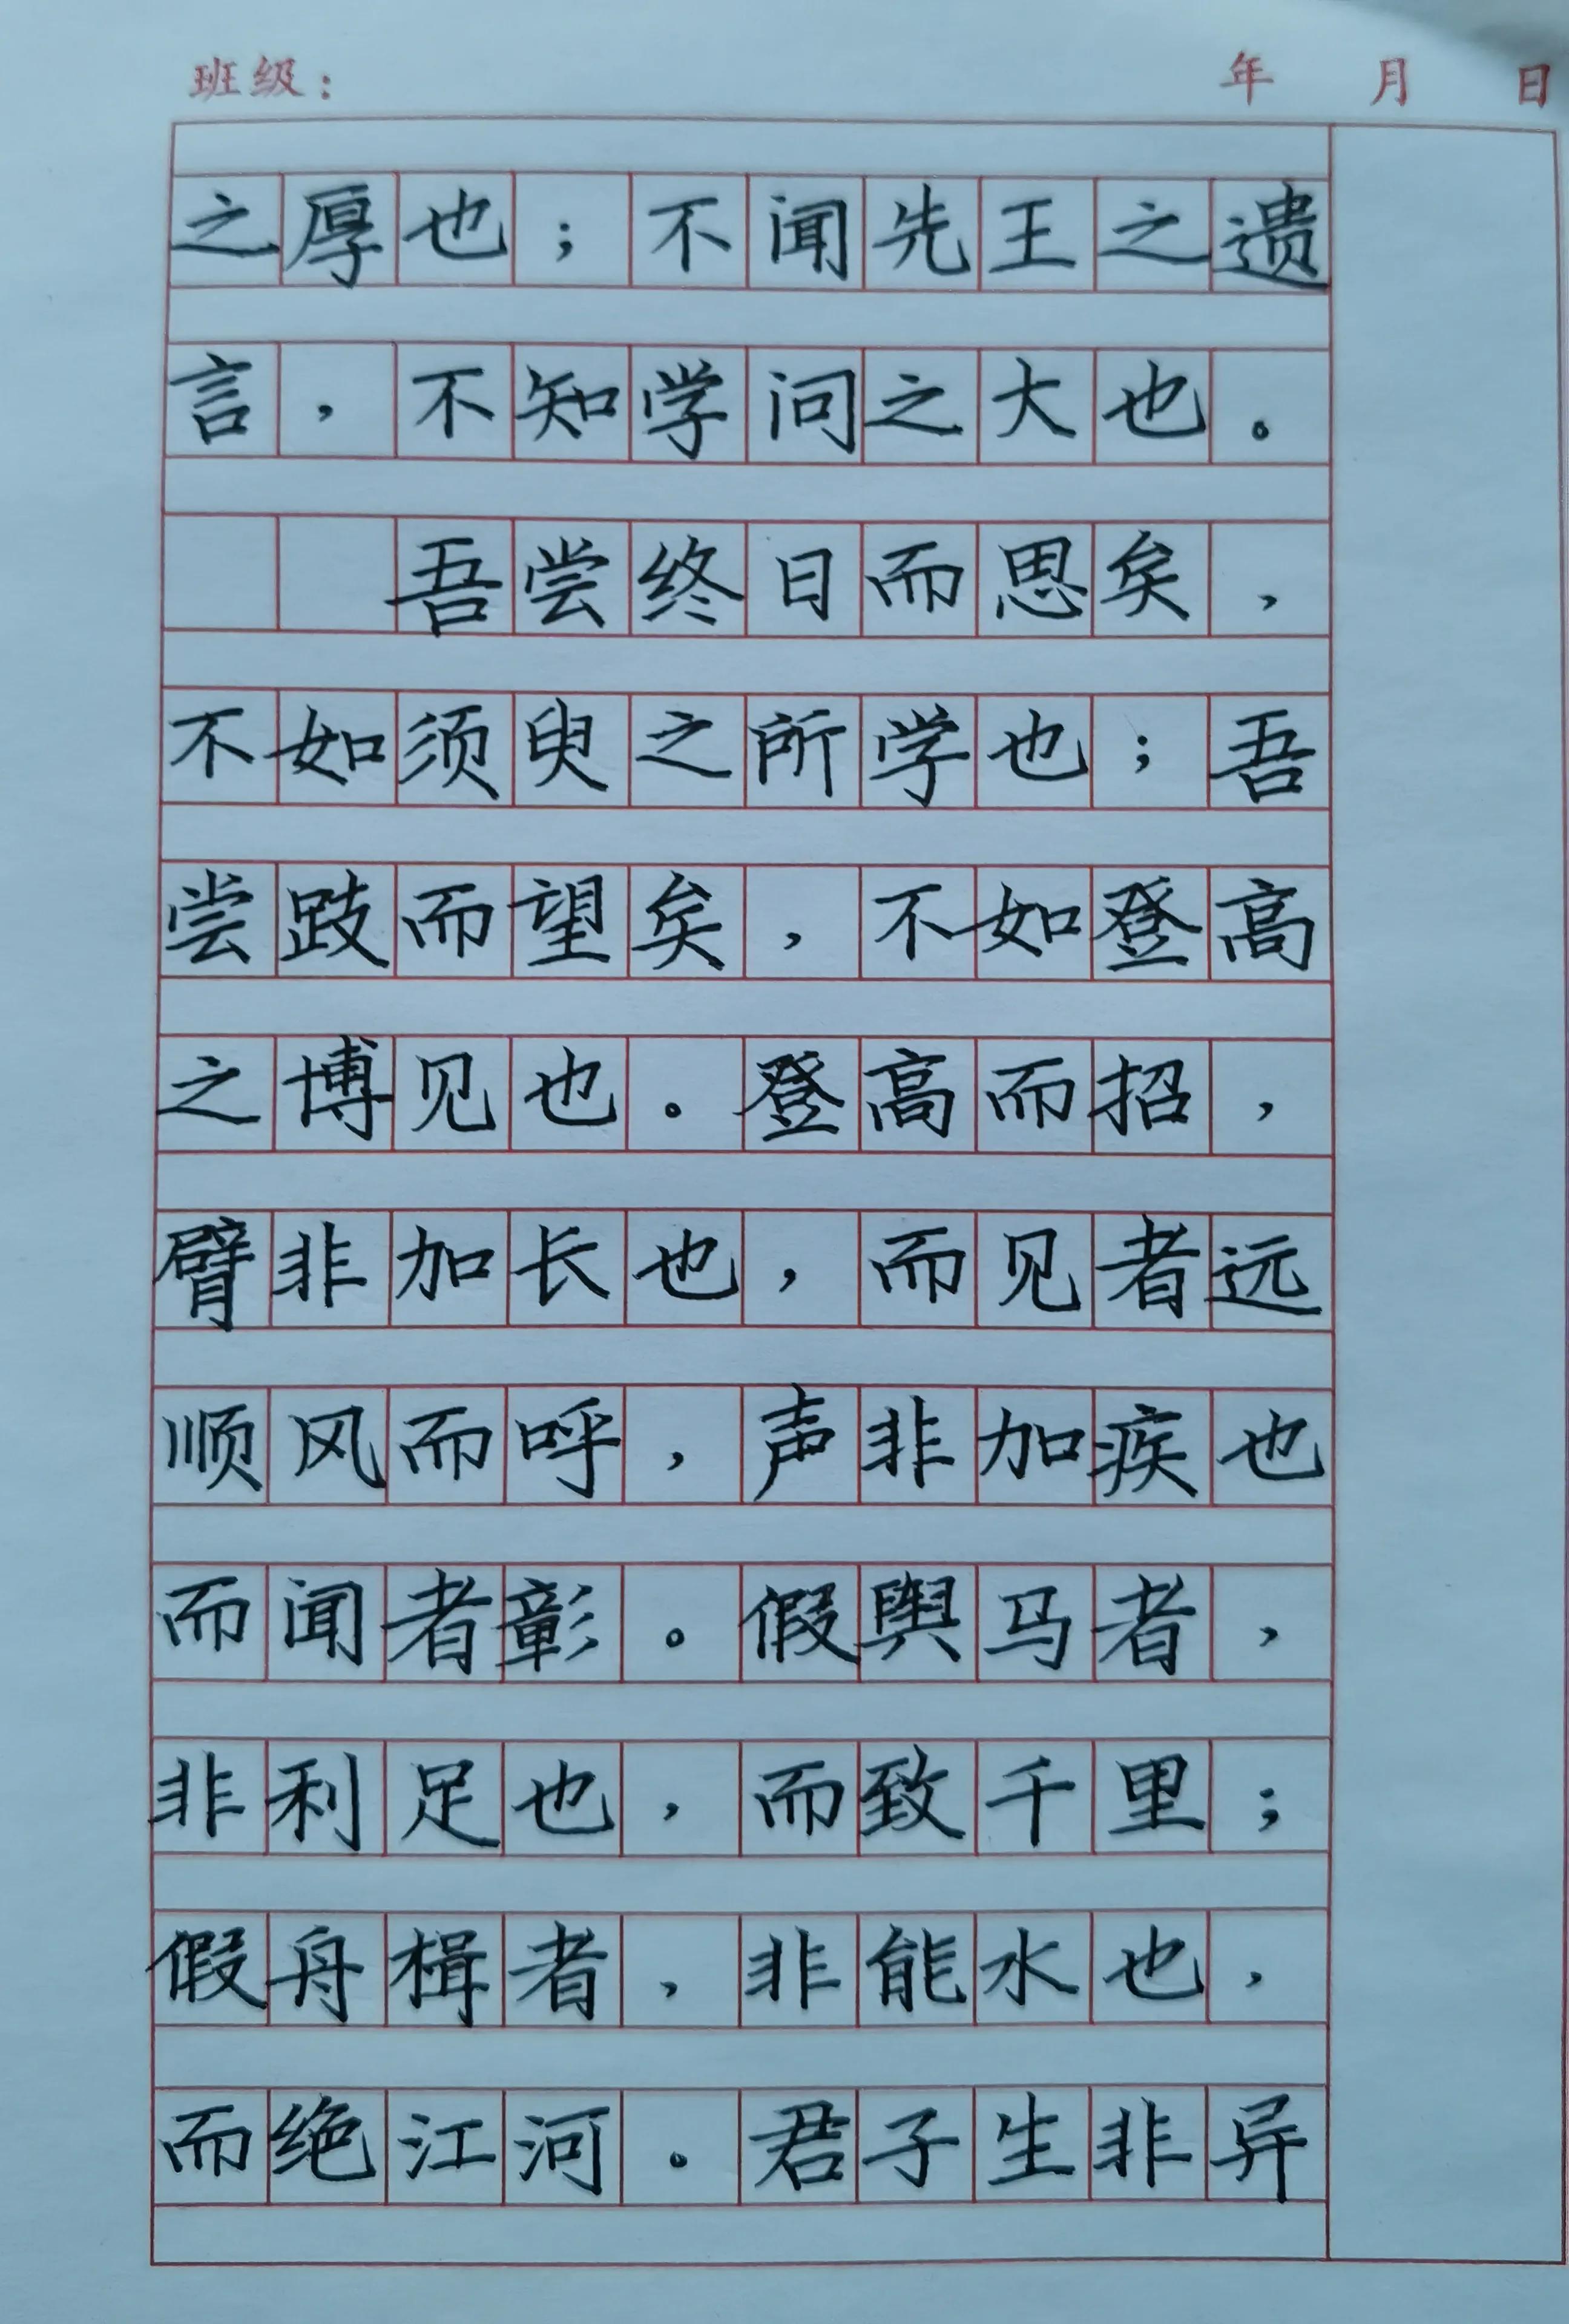 班级： 年 月 日
之厚也；不闻先王之遗
言，不知学问之大也。
吾尝终日而思矣，
不如须臾之所学也；吾
尝跂而望矣，不如登高
之博见也。登高而招，
臂非加长也，而见者远
顺风而呼，声非加疾也
而闻者彰。假舆马者，
非利足也，而致千里；
假舟楫者，非能水也，
而绝江河。君子生非异